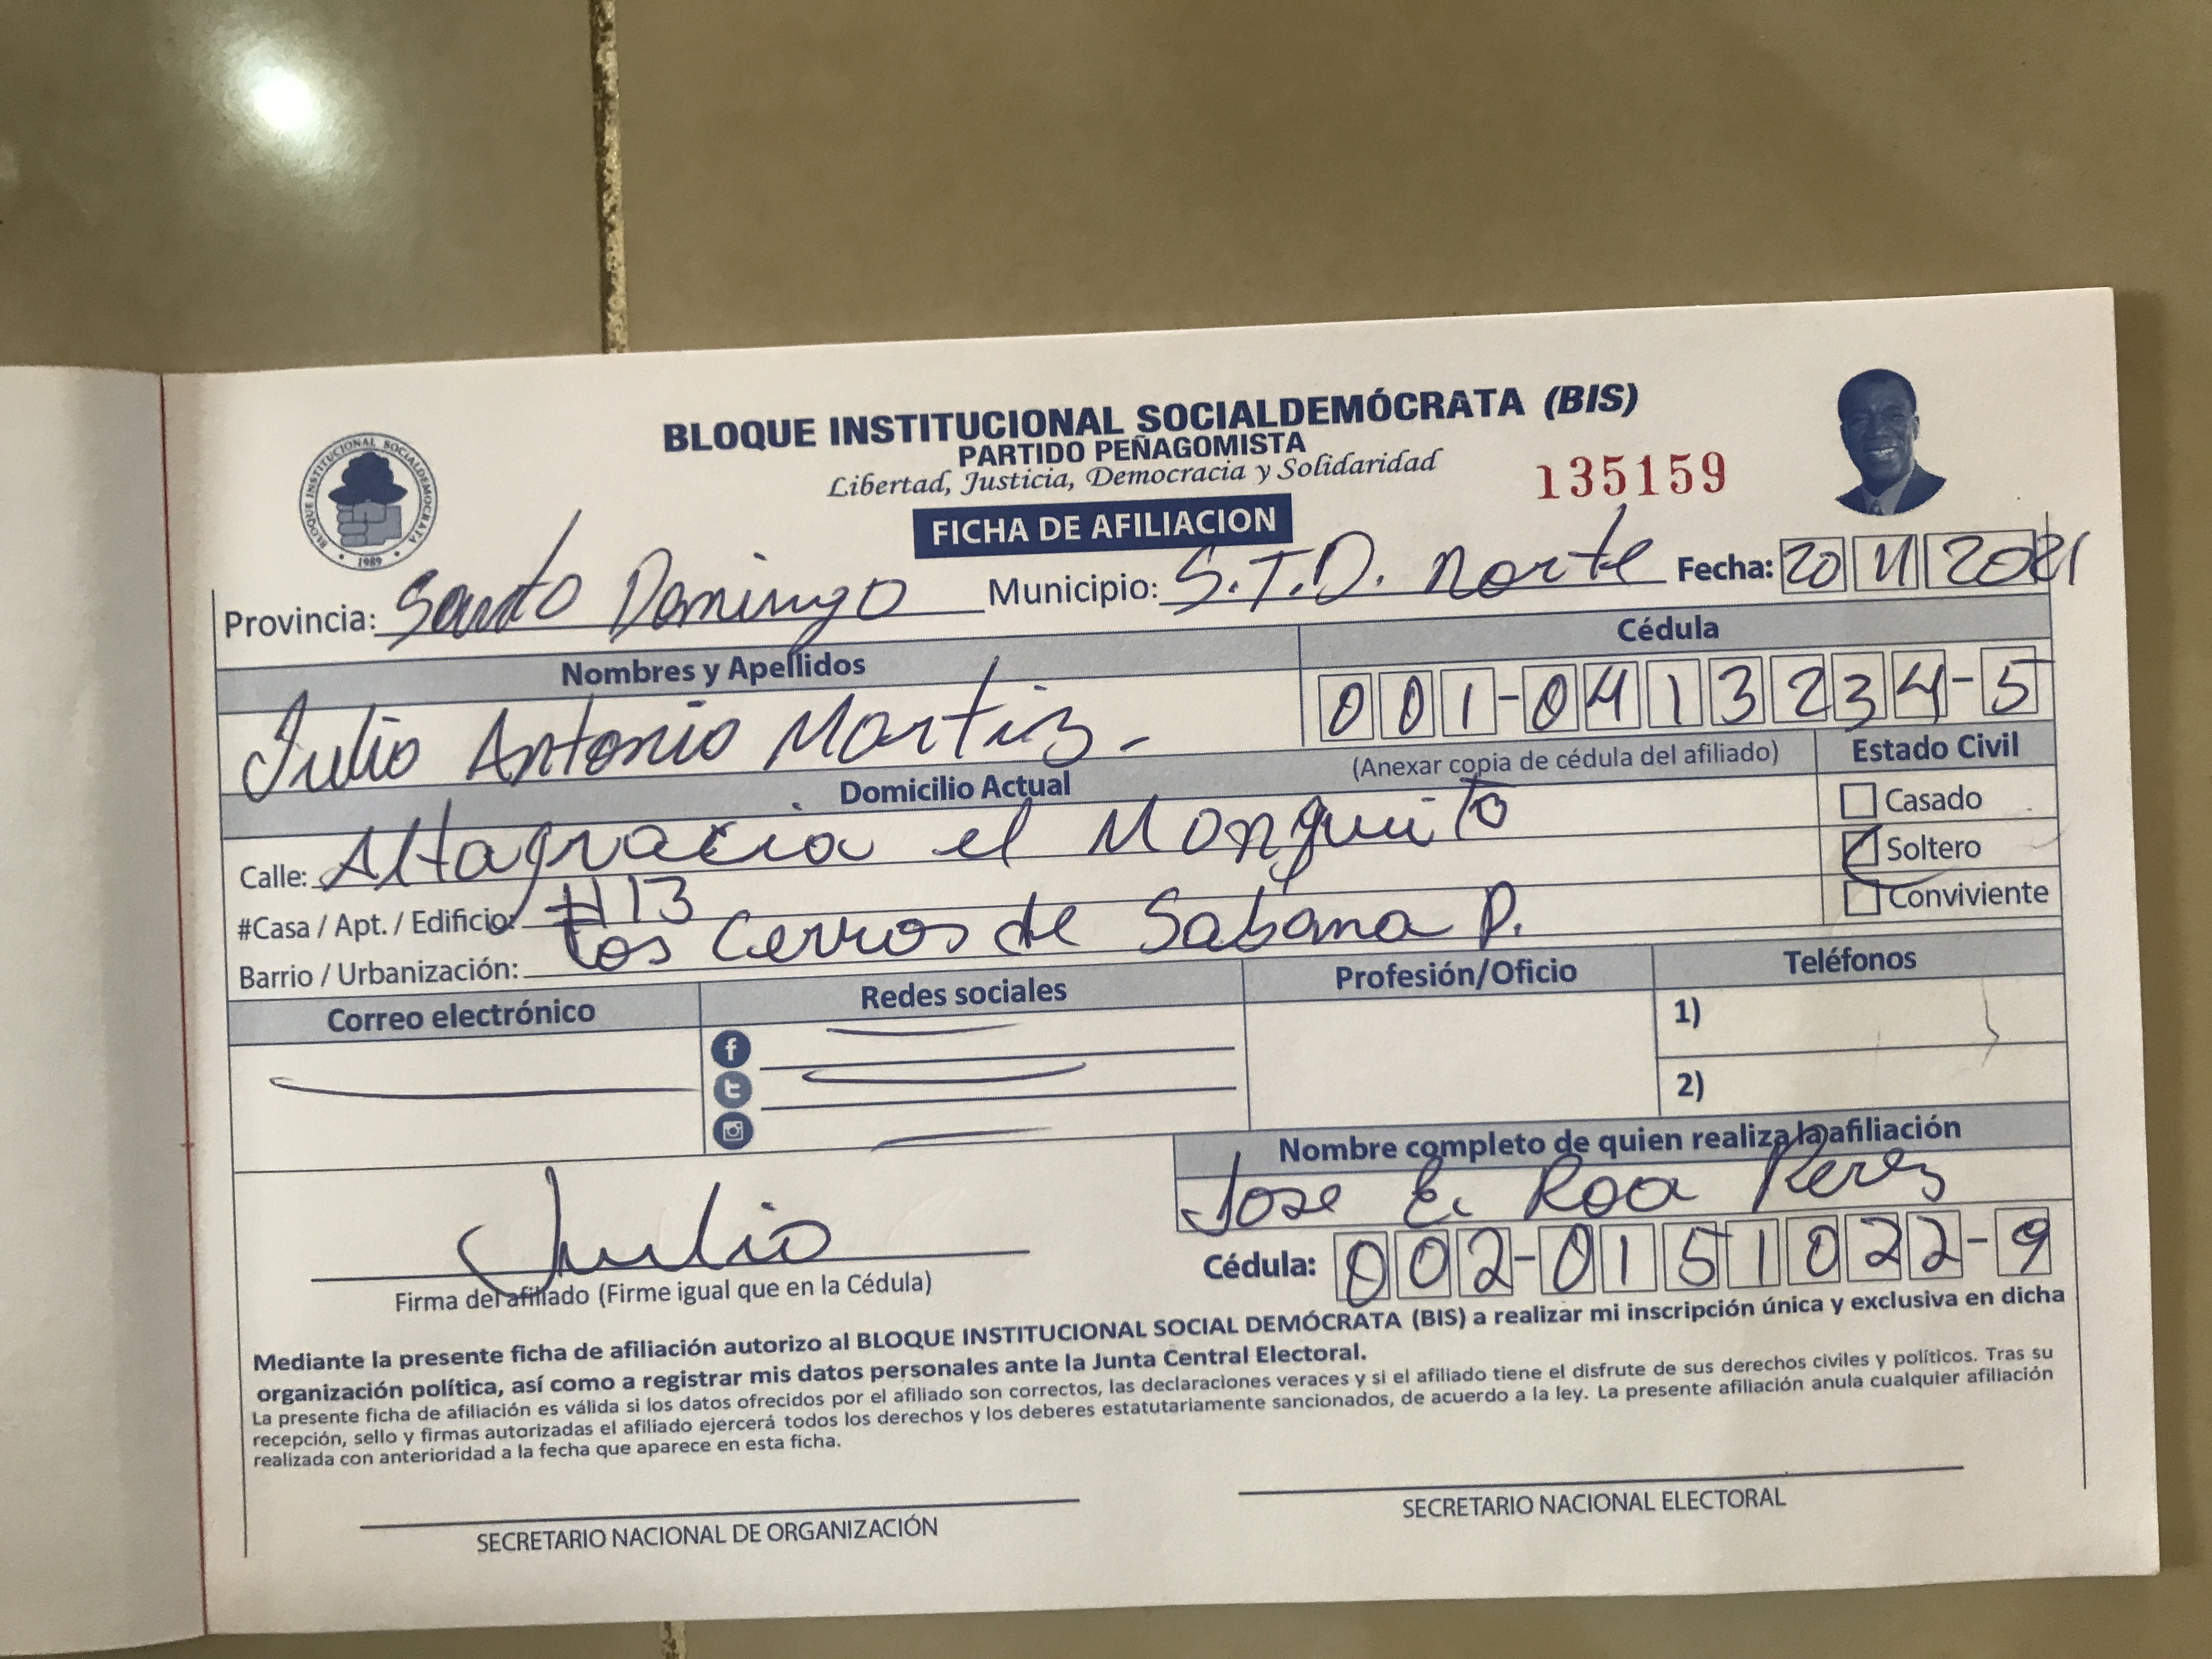 BLOQUE INSTITUCIONAL SOCIALDEMÓCRATA (BIS)
PARTIDO PEÑAGOMISTA
Libertad, Justicia, Democracia y Solidaridad
135159
BLOQUE INSTITUCIONAL SOCIALDEMOCRATA
1989
FICHA DE AFILIACION
Provincia: Santo Domingo Municipio: S.T.D. norte Fecha: 20 11 2021
Nombres y Apellidos Cédula
Julio Antonio Martis - 001-0413234-5
(Anexar copia de cédula del afiliado) Estado Civil
Domicilio Actual
Casado
Calle: Altagracia el Monguito
Soltero
#Casa / Apt. / Edificio: #13
Conviviente
Barrio / Urbanización: Los Cerros de Sabana P.
Correo electrónico Redes sociales Profesión/Oficio Teléfonos
1)
2)
Nombre completo de quien realiza la afiliación
Jose E. Roa Perez
Julio
Cédula: 002-0151022-9
Firma del afiliado (Firme igual que en la Cédula)
Mediante la presente ficha de afiliación autorizo al BLOQUE INSTITUCIONAL SOCIAL DEMÓCRATA (BIS) a realizar mi inscripción única y exclusiva en dicha
organización política, así como a registrar mis datos personales ante la Junta Central Electoral.
La presente ficha de afiliación es válida si los datos ofrecidos por el afiliado son correctos, las declaraciones veraces y si el afiliado tiene el disfrute de sus derechos civiles y políticos. Tras su
recepción, sello y firmas autorizadas el afiliado ejercerá todos los derechos y los deberes estatutariamente sancionados, de acuerdo a la ley. La presente afiliación anula cualquier afiliación
realizada con anterioridad a la fecha que aparece en esta ficha.
SECRETARIO NACIONAL DE ORGANIZACIÓN SECRETARIO NACIONAL ELECTORAL